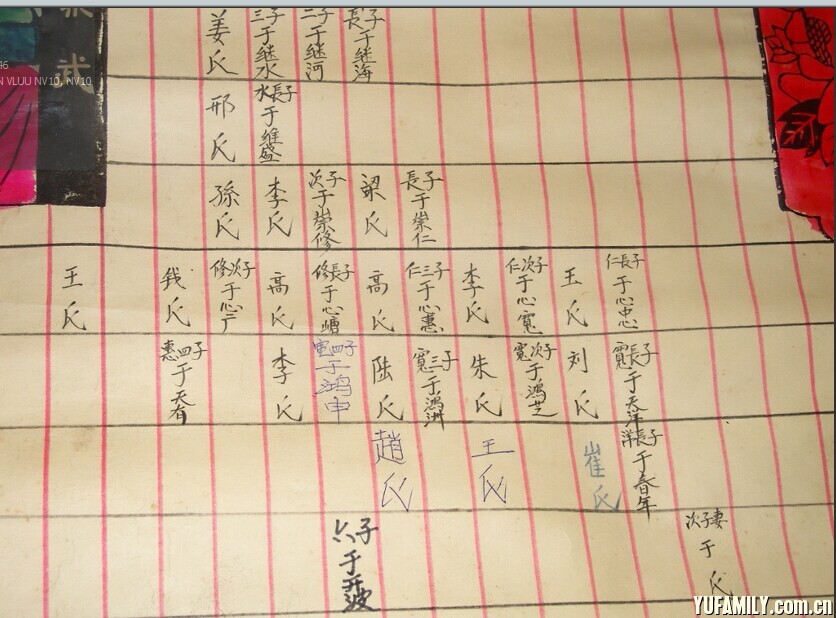 長子于继海
二子于继河
三子于继水
姜氏
水長子于维盛
邢氏
長子于崇仁
梁氏
次子于崇修
李氏
孫氏
仁長子于心忠
王氏
仁次子于心寬
李氏
仁三子于心惠
高氏
修長子于心
高氏
修次子于心广
氏
王氏
寬長子于天洋
刘氏
寬次子于鴻芝
朱氏
寬三子于鴻洲
陆氏
寬四子于鸿申
李氏
惠四子于天春
洋長子于春年
崔氏
王氏
趙氏
次子妻于氏
六子于波
武
46
N VLUU NV10, NV10
YUFAMILY.com.cn